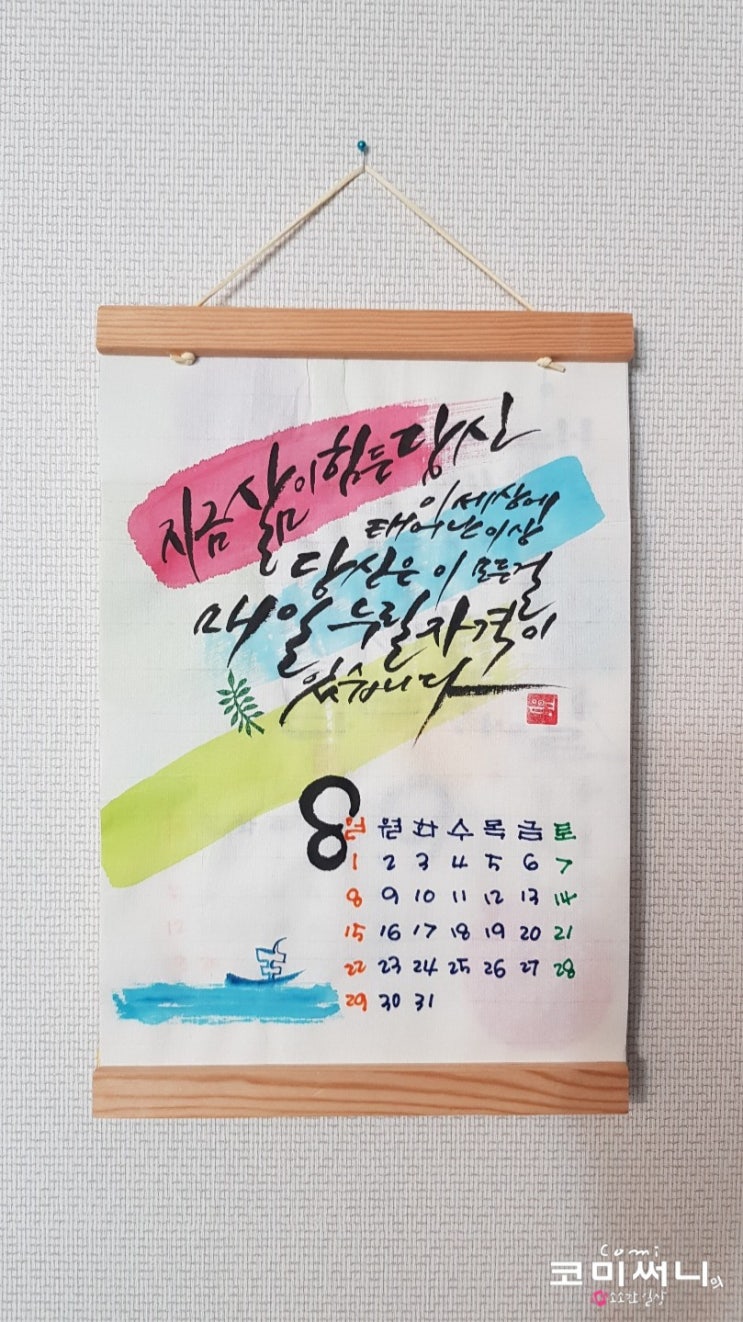 지금 삶이 힘든 당신
이 세상에
태어난 이상
당신은 이 모든걸
매일 누릴 자격이
있습니다
8
일 월 화 수 목 금 토
1 2 3 4 5 6 7
8 9 10 11 12 13 14
15 16 17 18 19 20 21
22 23 24 25 26 27 28
29 30 31
Comi
코미써니의
소소한 일상